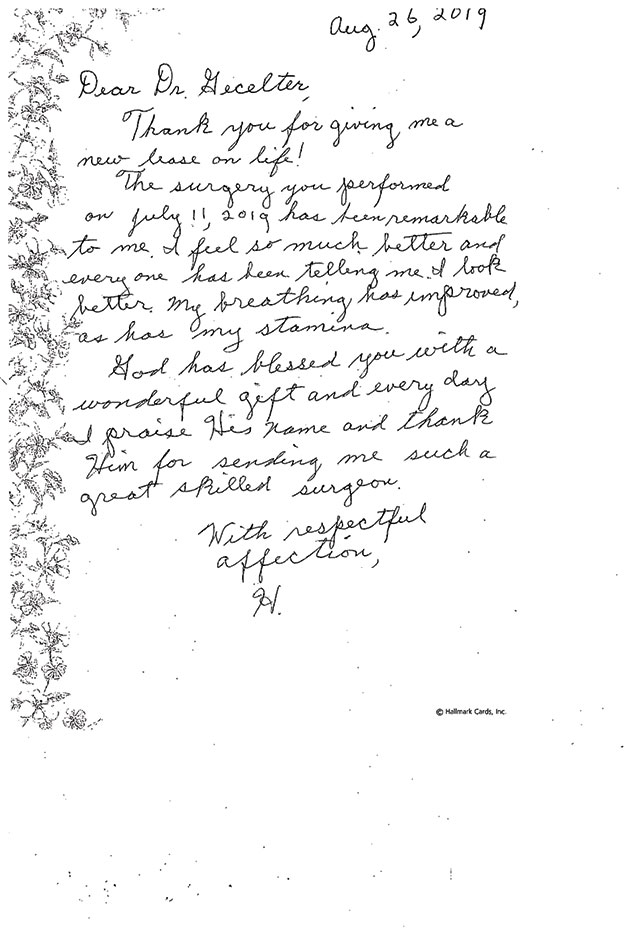 Aug. 26, 2019
Dear Dr. Gecelter,
Thank you for giving me a
new lease on life!
The surgery you performed
on July 11, 2019 has been remarkable
to me. I feel so much better and
every one has been telling me I look
better. My breathing has improved,
as has my stamina.
God has blessed you with a
wonderful gift and every day
I praise His name and thank
Him for sending me such a
great skilled surgeon.
With respectful
affection,
H.
© Hallmark Cards, Inc.